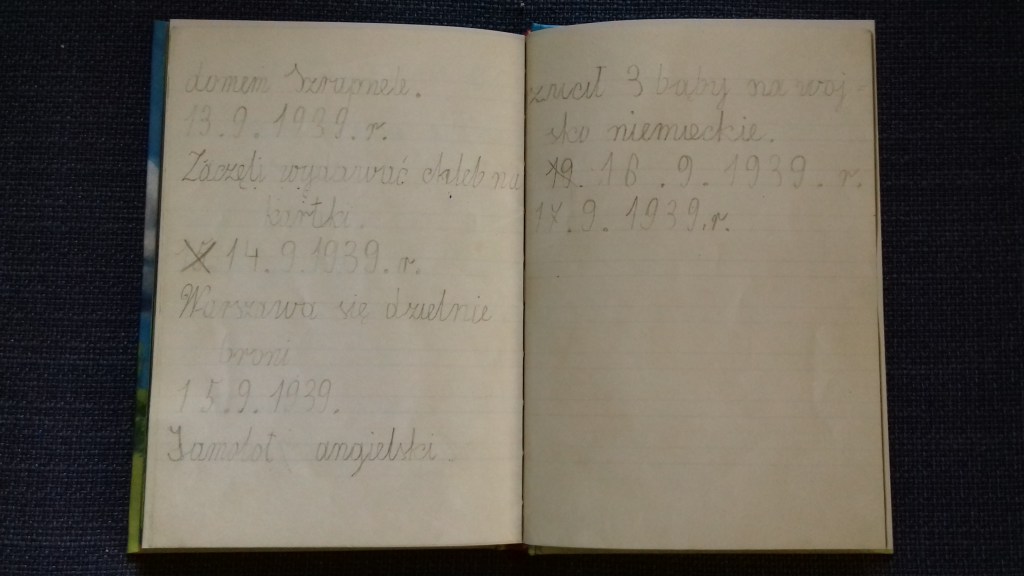 domem Szrapnele.
13.9.1939.r.
Zaczęli wydawać chleb na
kartki.
14.9.1939.r.
Warszawa się dzielnie
broni
15.9.1939.
Samolot angielski
zrucił 3 bąby na woj-
sko niemieckie.
19. 16.9.1939.r.
17.9.1939.r.